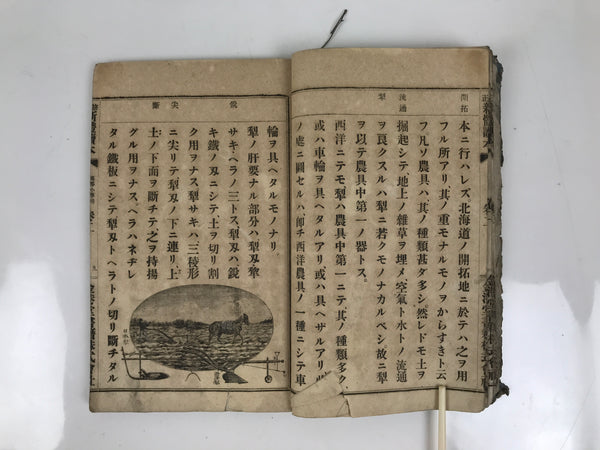 開拓
流通
犁
本ニ行ハレズ北海道ノ開拓地ニ於テハ之ヲ用
フル所アリ其ノ重モナルモノヲからすきト云
フ凡ソ農具ハ其ノ種類甚ダ多シ然レドモ土ヲ
掘起シテ、地上ノ雜草ヲ埋メ、空氣ト水トノ流通
ヲ良クスルハ犁ニ若クモノナカルベシ故ニ犁
ヲ以テ農具中第一ノ器トス。
西洋ニテモ犁ハ農具中第一ニテ其ノ種類多ク、
或ハ車輪ヲ具ヘタルアリ、或ハ具ヘザルアリ、此
ノ處ニ圖セルハ即チ西洋農具ノ一種ニシテ車
鋭
尖
斷
輪ヲ具ヘタルモノナリ。
犁ノ肝要ナル部分ハ犁刄犂
サキ、ヘラノ三トス犁刄ハ鋭
キ鐵ノ刄ニシテ、土ヲ切リ割
ク用ヲナス犁サキハ三稜形
ニ尖リテ犁刄ノ下ニ連リ、上
土ノ下面ヲ斷チテ之ヲ持揚
グル用ヲナス。ヘラハネヂレ
タル鐵板ニシテ犁刄トヘラトノ切リ斷チタル